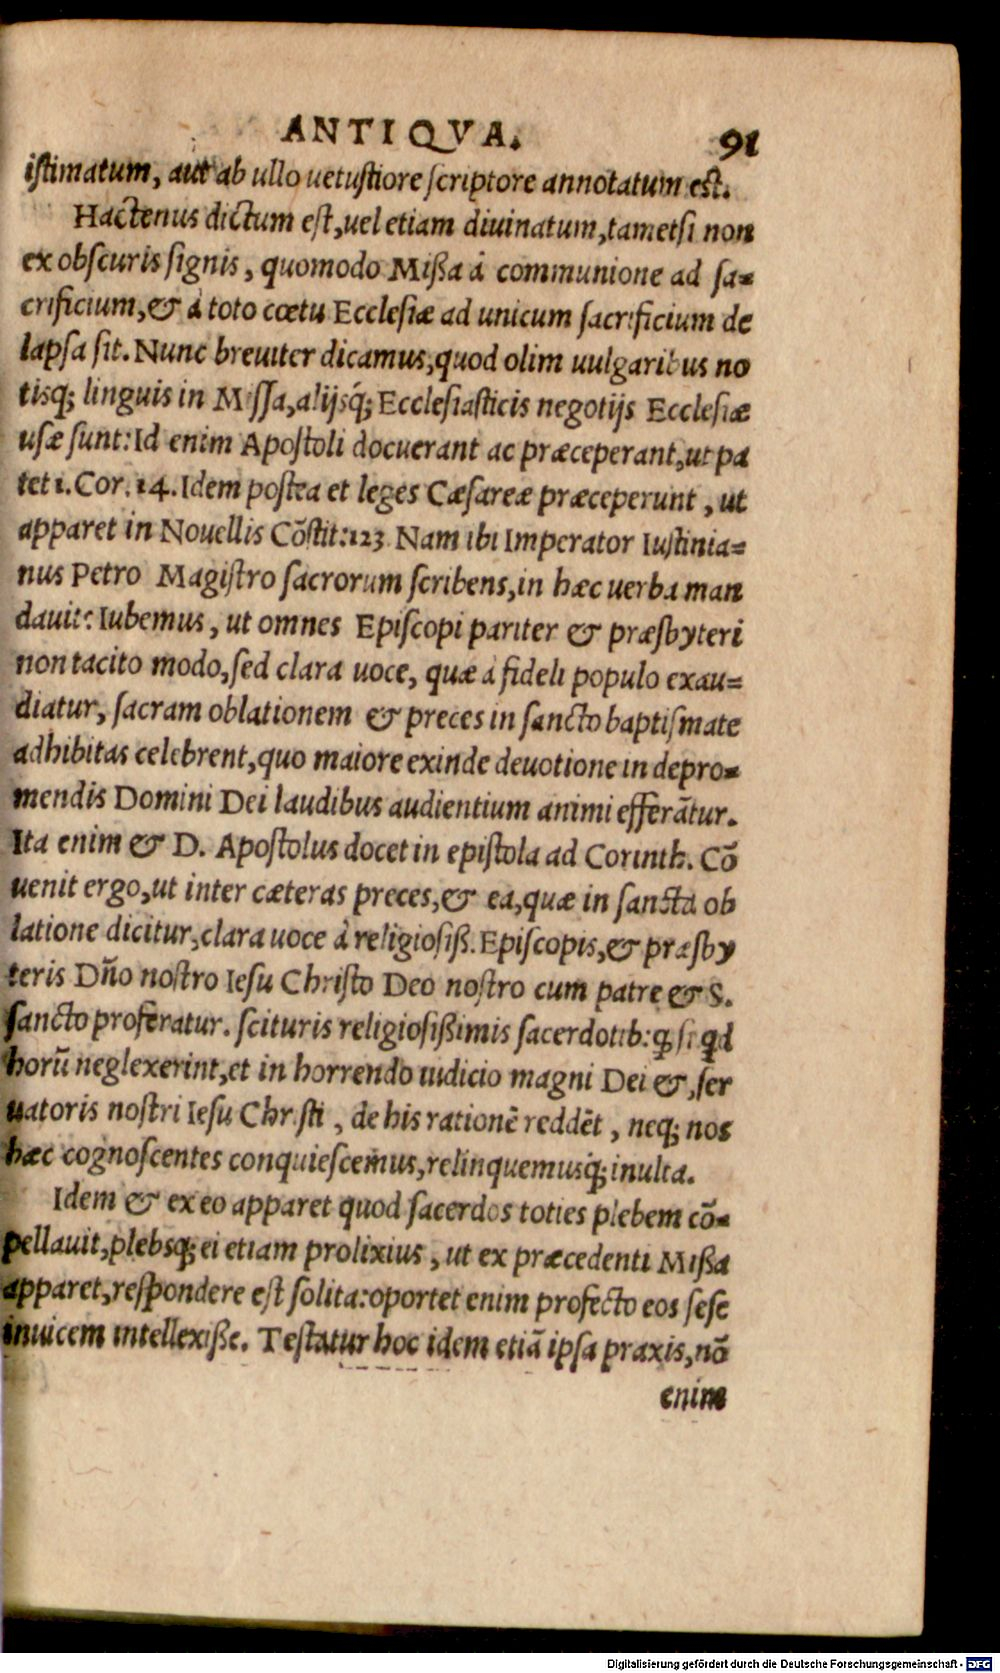 ANTIQVA. 91
istimatum, aut ab ullo uetustiore scriptore annotatum est.
Hactenus dictum est, uel etiam diuinatum, tametsi non
ex obscuris signis, quomodo Mißa à communione ad sa=
crificium, & à toto cœtu Ecclesiæ ad unicum sacrificium de
lapsa sit. Nunc breuiter dicamus, quod olim uulgaribus no
tisq; linguis in Missa, alijsq́; Ecclesiasticis negotijs Ecclesiæ
usæ sunt: Id enim Apostoli docuerant ac præceperant, ut pa
tet 1. Cor. 14. Idem postea et leges Cæsareæ præceperunt, ut
apparet in Nouellis Cõstit: 123. Nam ibi Imperator Iustinia=
nus Petro Magistro sacrorum scribens, in hæc uerba man
dauit: Iubemus, ut omnes Episcopi pariter & præsbyteri
non tacito modo, sed clara uoce, quæ à fideli populo exau=
diatur, sacram oblationem & preces in sancto baptismate
adhibitas celebrent, quo maiore exinde deuotione in depro=
mendis Domini Dei laudibus audientium animi efferãtur.
Ita enim & D. Apostolus docet in epistola ad Corinth. Cõ
uenit ergo, ut inter cæteras preces, & ea, quæ in sancta ob
latione dicitur, clara uoce à religiosiß. Episcopis, & præsby
teris Dño nostro Iesu Christo Deo nostro cum patre & S.
sancto proferatur. scituris religiosißimis sacerdotib: ꝙ si qd
horũ neglexerint, et in horrendo iudicio magni Dei &, ser
uatoris nostri Iesu Christi, de his rationẽ reddẽt, neq; nos
hæc cognoscentes conquiescemus, relinquemusq́; inulta.
Idem & ex eo apparet quod sacerdos toties plebem cõ=
pellauit, plebsq; ei etiam prolixius, ut ex præcedenti Mißa
apparet, respondere est solita: oportet enim profecto eos sese
inuicem intellexiße. Testatur hoc idem etiã ipsa praxis, nõ
enim
Digitalisierung gefördert durch die Deutsche Forschungsgemeinschaft - DFG